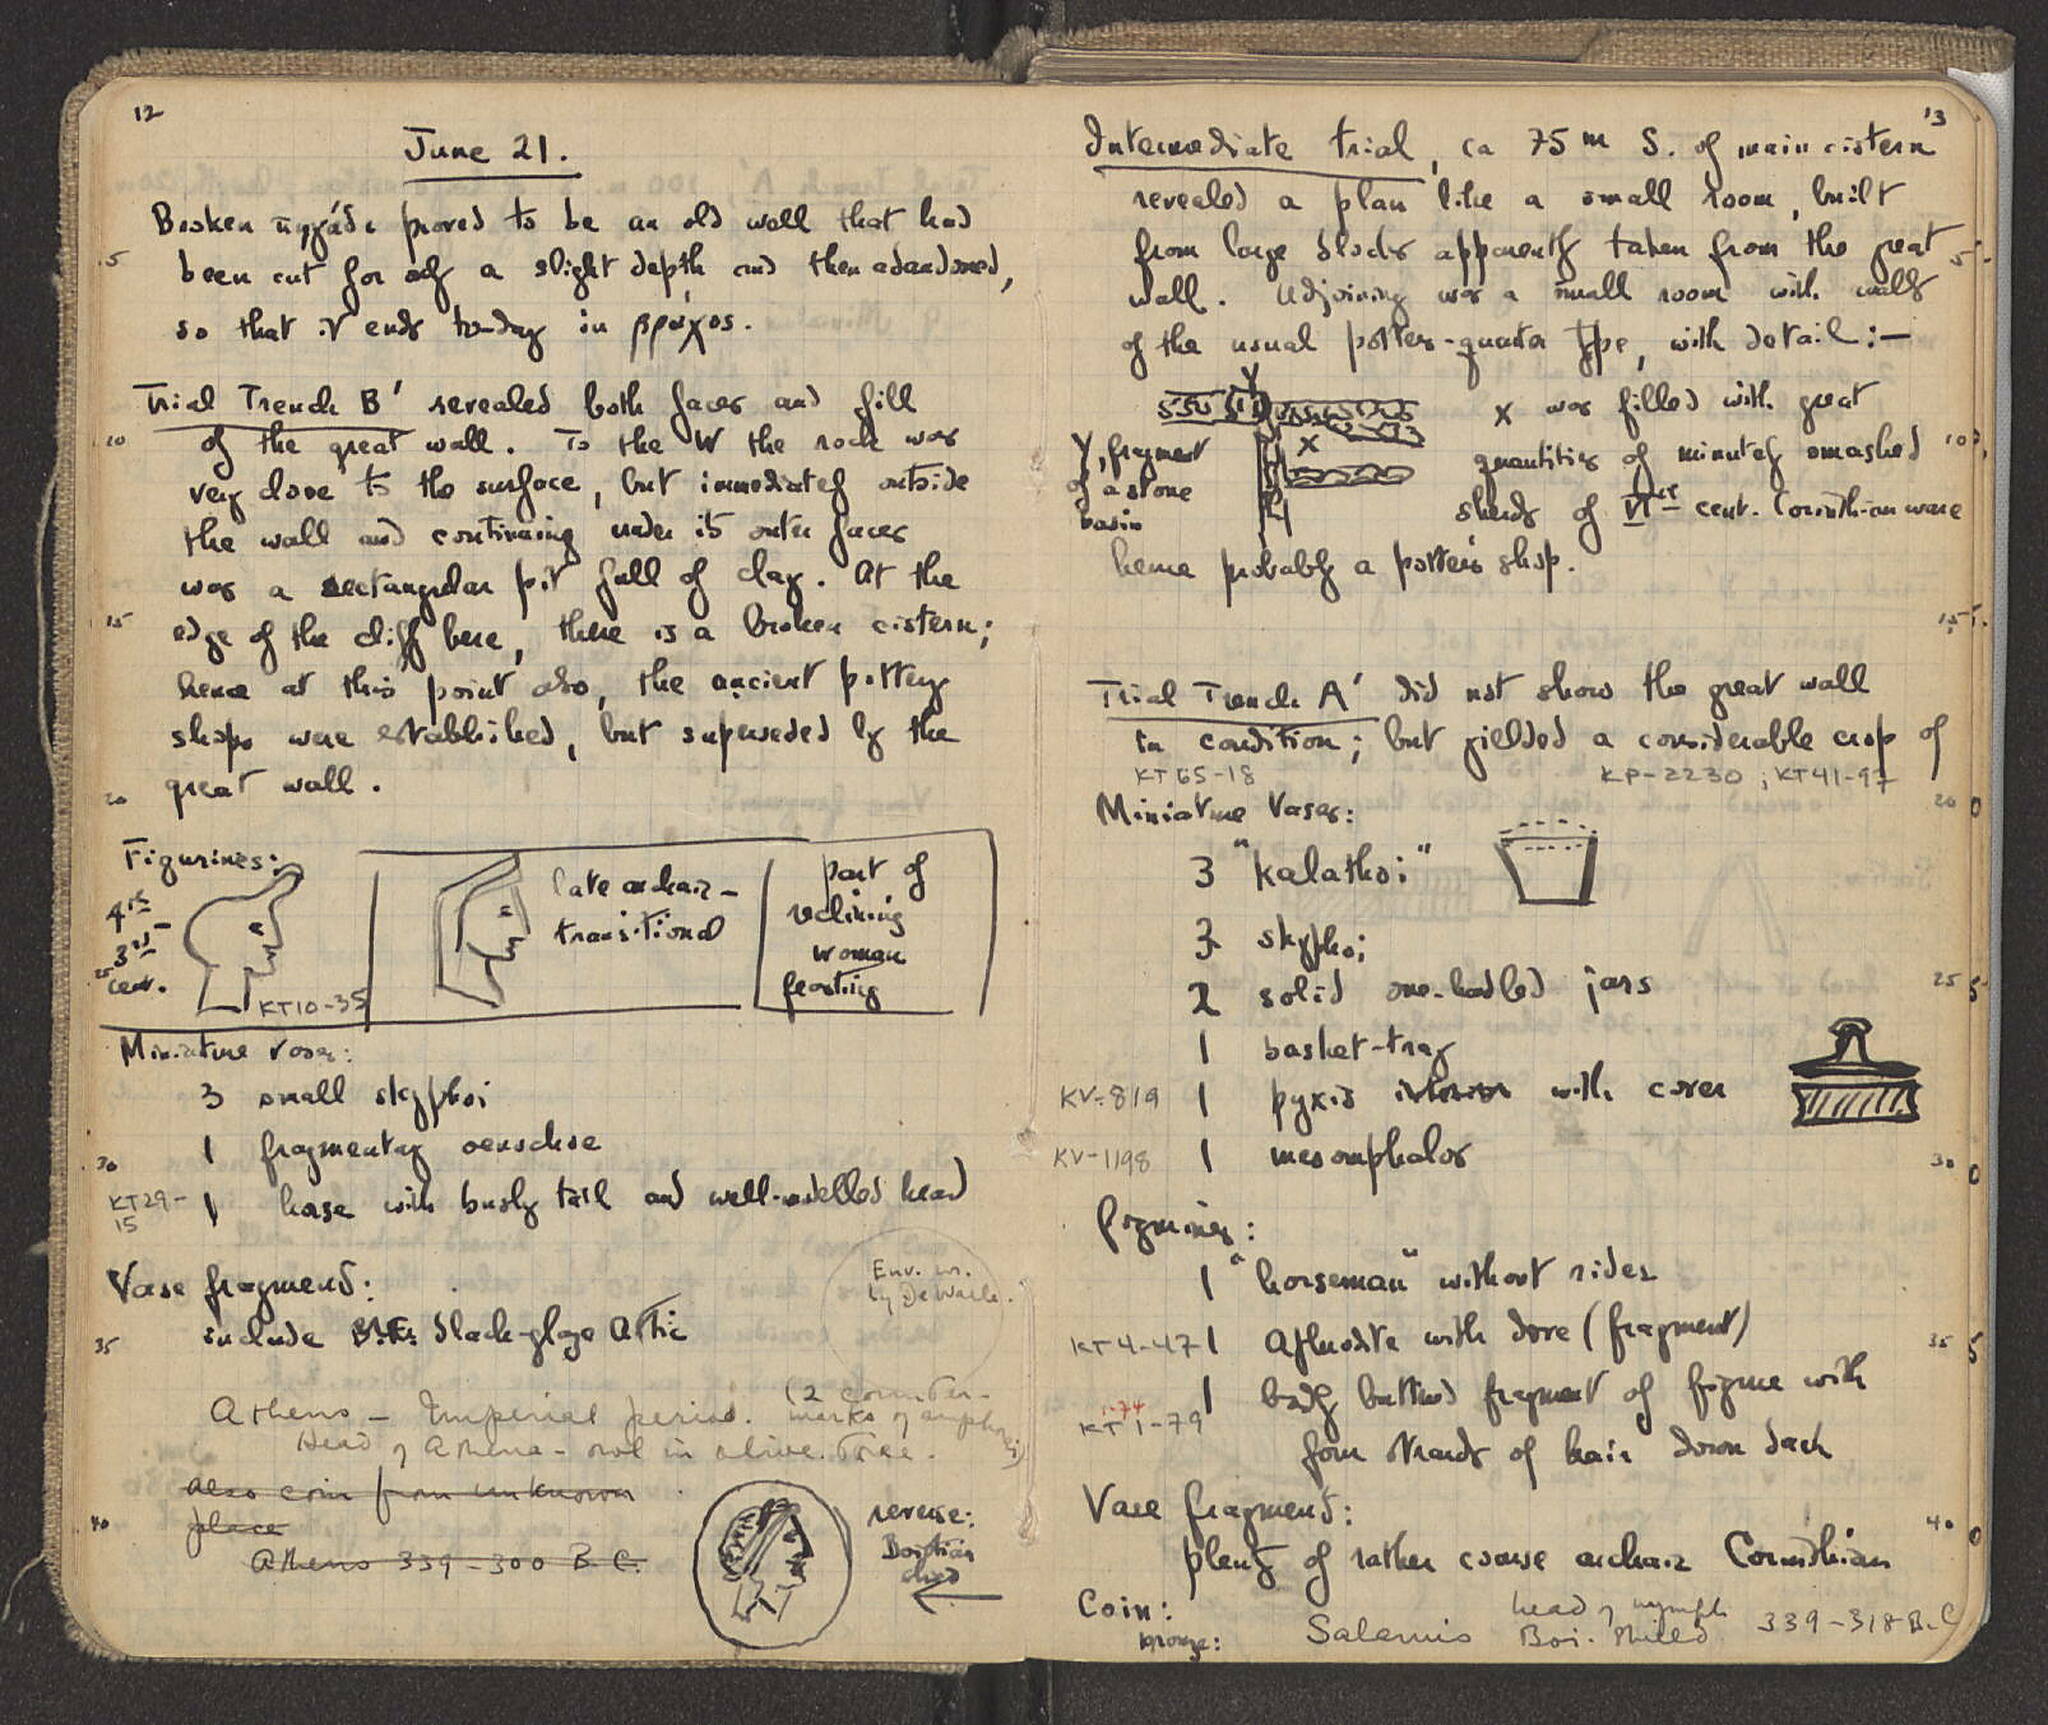 12
June 21.
Broken πηγάδι proved to be an old well that had
5 been cut for only a slight depth and then abandoned,
so that it ends to-day in βράχος.
Trial Trench B' revealed both faces and fill
10 of the great wall. To the W the rock was
very close to the surface, but immediately outside
the wall and continuing under its outer faces
was a rectangular pit full of clay. At the
15 edge of the cliff here, there is a broken cistern;
hence at this point also, the ancient pottery
shops were established, but superseded by the
20 great wall.
Figurines:
4th
3rd
25 cent.
KT10-35
late archaic-
transitional
part of
reclining
woman
feasting
Miniature vases:
3 small skyphoi
1 fragmentary oenochoe
30
KT29-
15
1 horse with bushy tail and well-modelled head
Vase fragments:
35 include B.F. black-glaze Attic
Env. wr.
by De Waele.
Athens – Imperial period. (2 counter-
marks of amphora)
Head of Athena – owl in olive tree.
also coin from unknown
40 place
Athens 339-300 B.C.
reverse:
Boeotian
shield
13
Intermediate trial, ca 75 m S. of main cistern
revealed a plan like a small room, built
from large blocks apparently taken from the great 5
wall. Adjoining was a small room with walls
of the usual potters-quarter type, with detail:—
Y
X
Y, fragment
of a stone
basin
x was filled with great
quantities of minutely smashed 10
sherds of VIth cent. Corinthian ware
hence probably a potter's shop.
15
Trial Trench A' did not show the great wall
in condition; but yielded a considerable crop of
KT65-18 KP-2230; KT41-97
Miniature Vases: 20
3 "kalathoi"
3 skyphoi
2 solid one-handled jars 25
1 basket-tray
KV-819 1 pyxis with cover
KV-1198 1 mesomphalos 30
figurines:
1 "horseman" without rider
KT4-47 1 Aphrodite with dove (fragment) 35
1 badly battered fragment of figurine with
KT 1-79
1-74
four strands of hair down back
Vase fragments:
40
plenty of rather coarse archaic Corinthian
Coin:
bronze: Salamis head of nymph
Boi. shield 339-318 B.C